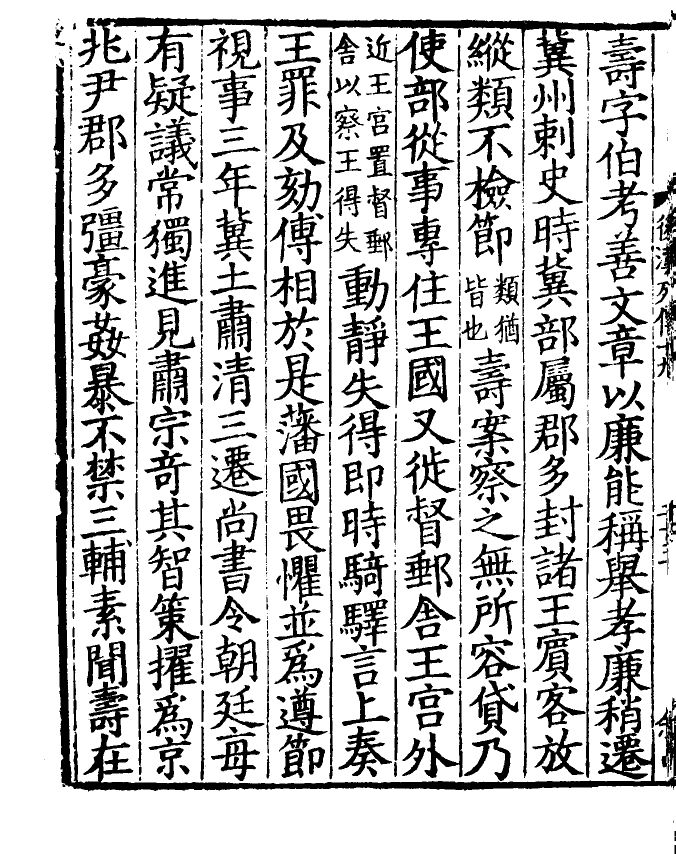 壽字伯考善文章以廉能稱舉孝廉稍遷
兾州刺史時兾部屬郡多封諸王賔客放
縱類不檢節類猶皆也壽案察之無所容貸乃
使部從事專住王國又徙督郵舎王宫外
近王宫置督郵舎以察王得失動靜失得即時騎驛言上奏
王罪及劾傅相於是藩國畏懼並爲遵節
視事三年兾土肅清三遷尚書令朝廷每
有疑議常獨進見肅宗竒其智策擢爲京
兆尹郡多彊豪姦暴不禁三輔素聞壽在